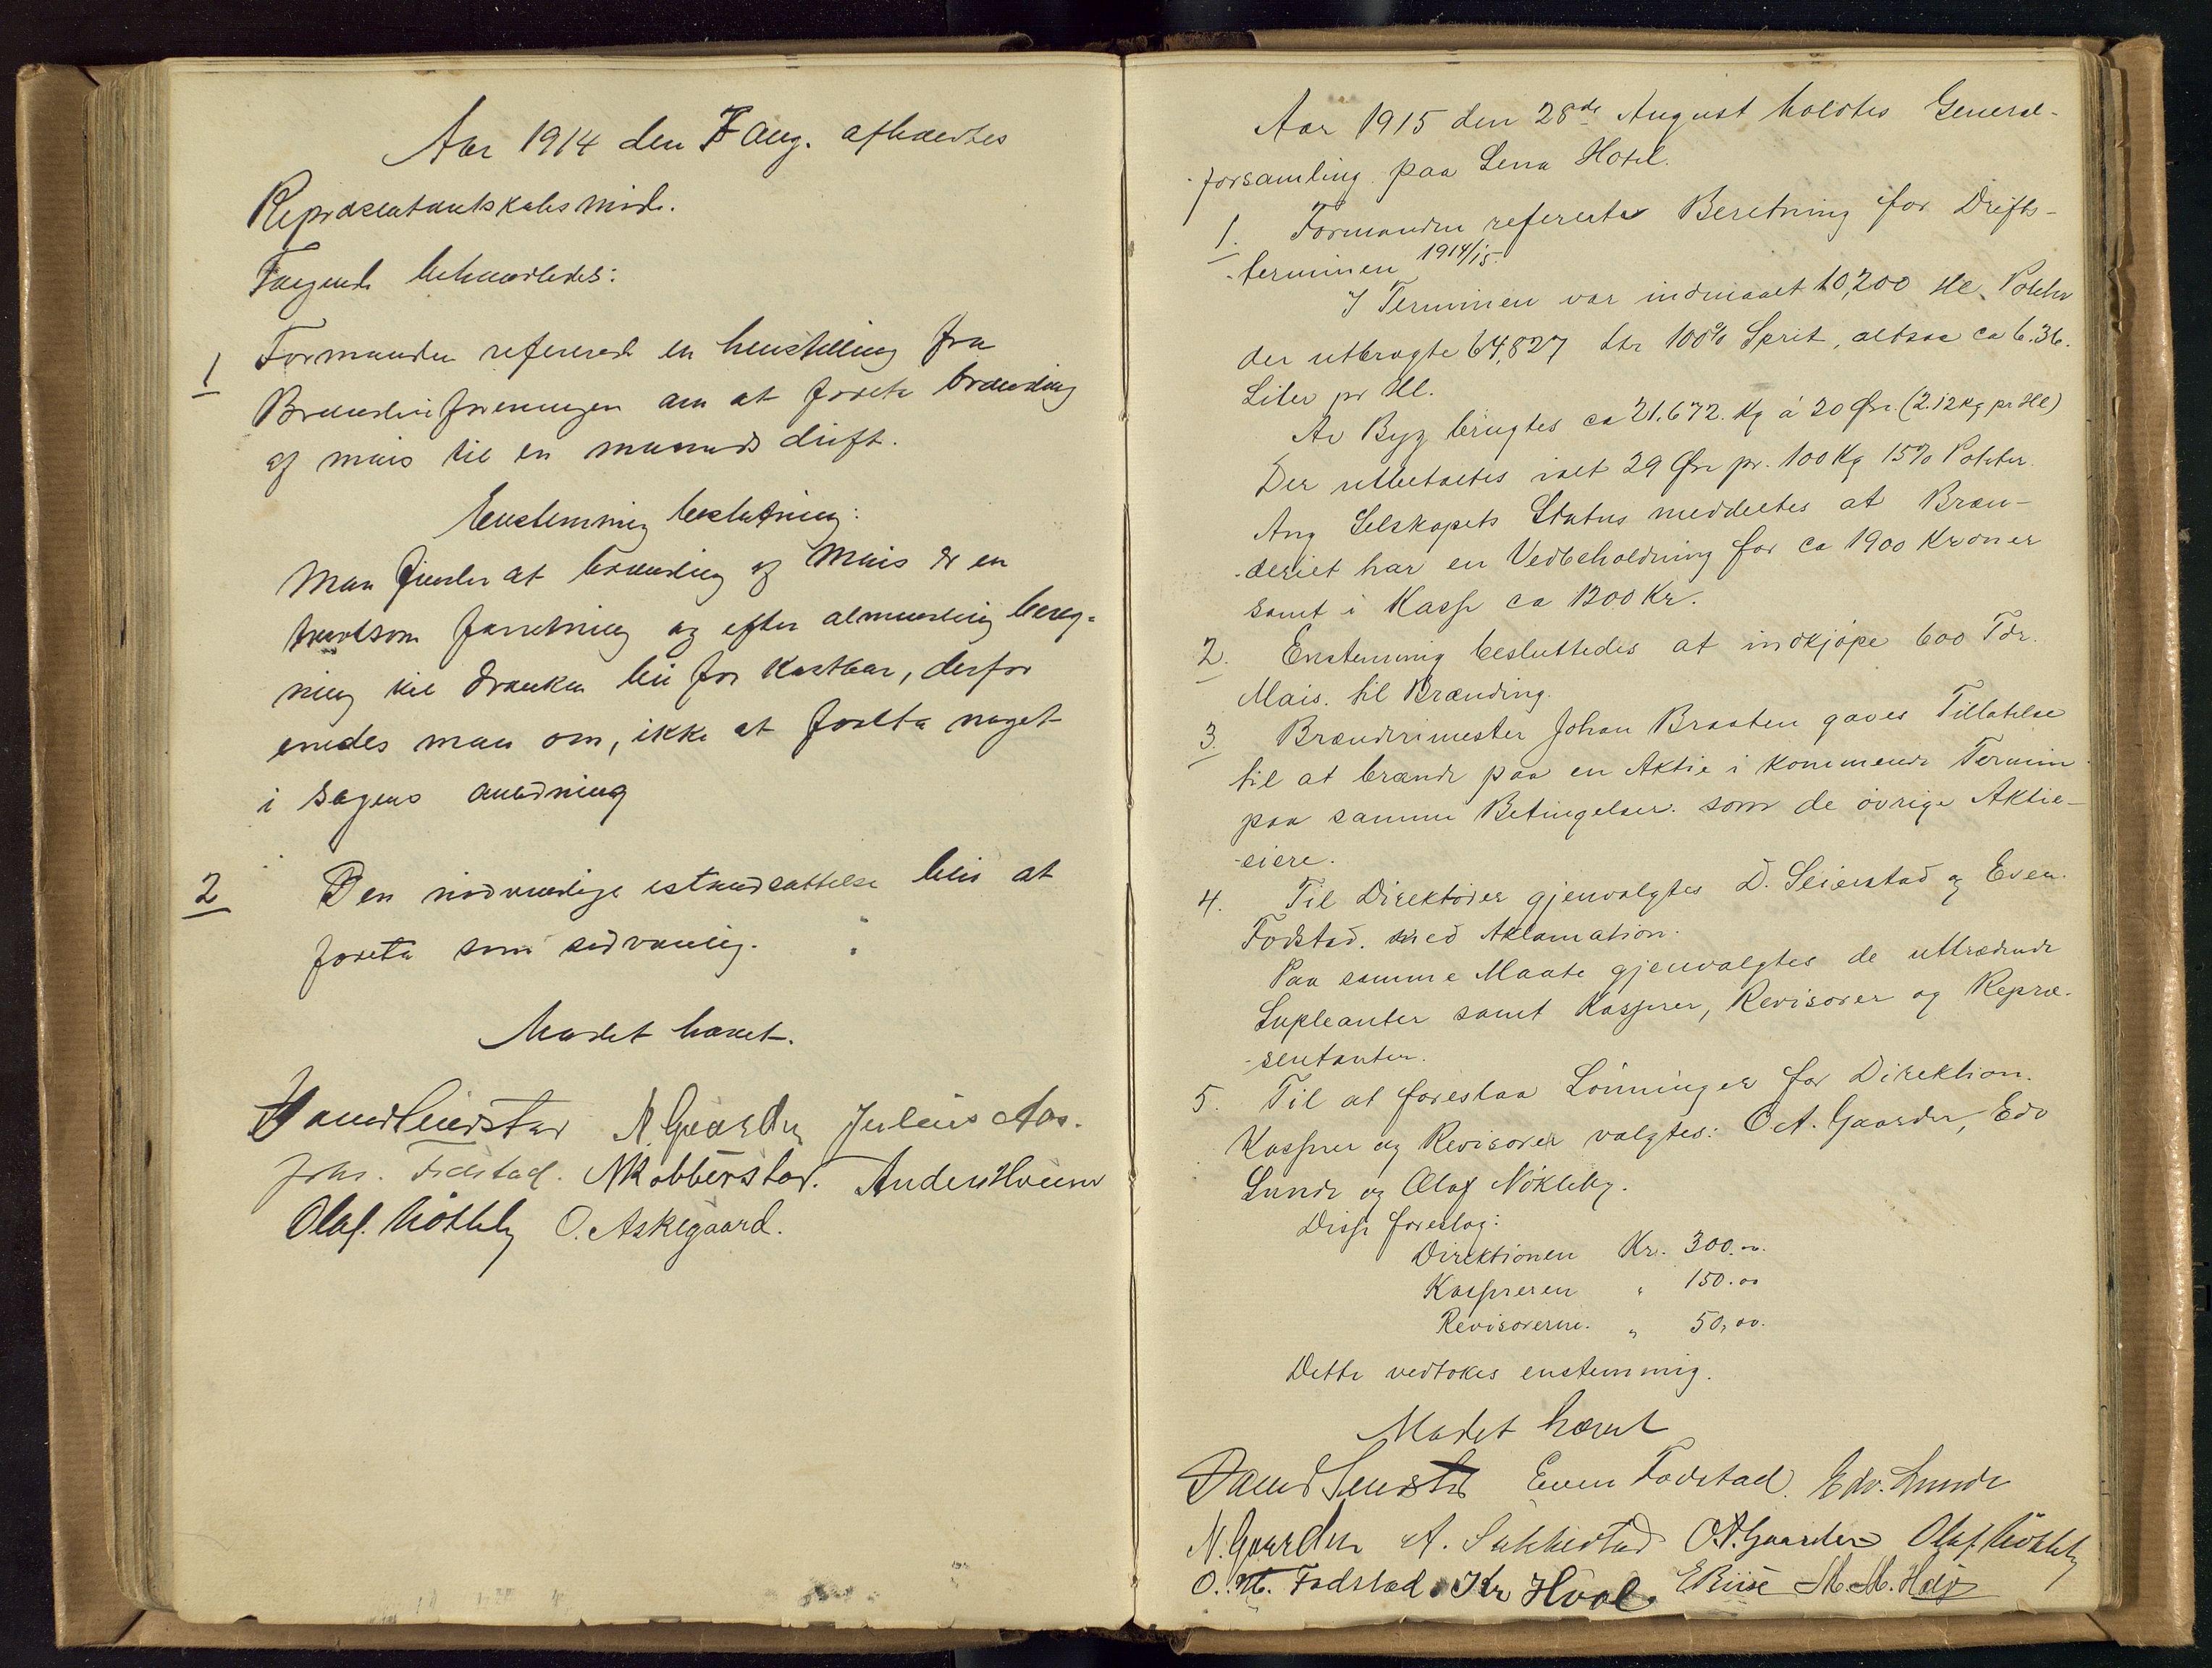 Aar 1914 den 7 Aug. afholdtes
Repræsentantskabsmøde.
Følgende behandledes:
1 Formanden refererede en henstilling fra
Brænderiforeningen om at foreta brænding
af mais til en maaneds drift.
Enstemmig beslutning:
Man finder at brænding af Mais er en
forretning og efter almindelig bereg-
ning vil dranken bli for kostbar, derfor
enedes man om, ikke at foreta noget
i sagens anledning
2 Den nødvendige istandsættelse blir at
foreta som sedvanlig.
Mødet hævet.
N. Gaarder Julius Aas.
Johs. Fodstad. N Kobberstad. Anders Hveem
Olaf. Nøkleby O. Askegaard.
Aar 1915 den 28de August holdtes General-
-forsamling paa Lena Hotel.
1. Formanden refererte Beretning for Drifts-
-terminen 1914/15.
I Terminen var indmaalt 10,200 Hl. Poteter
der utbragte 64,827 Ltr 100% Sprit, altsaa ca 6.36.
Liter pr Hl.
Av Byg brugtes ca 21.672. Kg á 20 Øre (2.12 Kg pr Hl)
Der utbetaltes ialt 29 Øre pr. 100 Kg 15% Poteter.
Ang Selskapets Status meddeltes at Bræn-
-deriet har en Vedbeholdning for ca 1900 Kroner
samt i Kasse ca 1200 Kr.
2. Enstemmig besluttedes at indkjøpe 600 Tdr.
Mais. til Brænding.
3. Brænderimester Johan Braaten gaves Tillatelse
til at brænde paa en Aktie i kommende Termin
paa samme Betingelser. som de øvrige Aktie-
-eiere.
4. Til Direktører gjenvalgtes D. Seierstad og Even
Fodstad. med Aklamation.
Paa samme Maate gjenvalgtes de uttrædende
Supleanter samt Kasserer, Revisorer og Repræ-
-sentanter.
5. Til at foreslaa Lønninger for Direktion.
Kasserer og Revisorer valgtes: O.A. Gaarder, Edv
Lunde og Olaf Nökleby.
Disse foreslog:
Direktionen Kr. 300.00.
Kassereren " 150.00
Revisorerne. " 50,00.
Dette vedtokes enstemmig.
Mødet hævet
David Seierstad Even Fodstad. Edv. Lunde
N. Gaarder A. O.A. Gaarder Olaf. Nøkleby
O. M. Fodstad. Kr Hval. E Riise M. M.